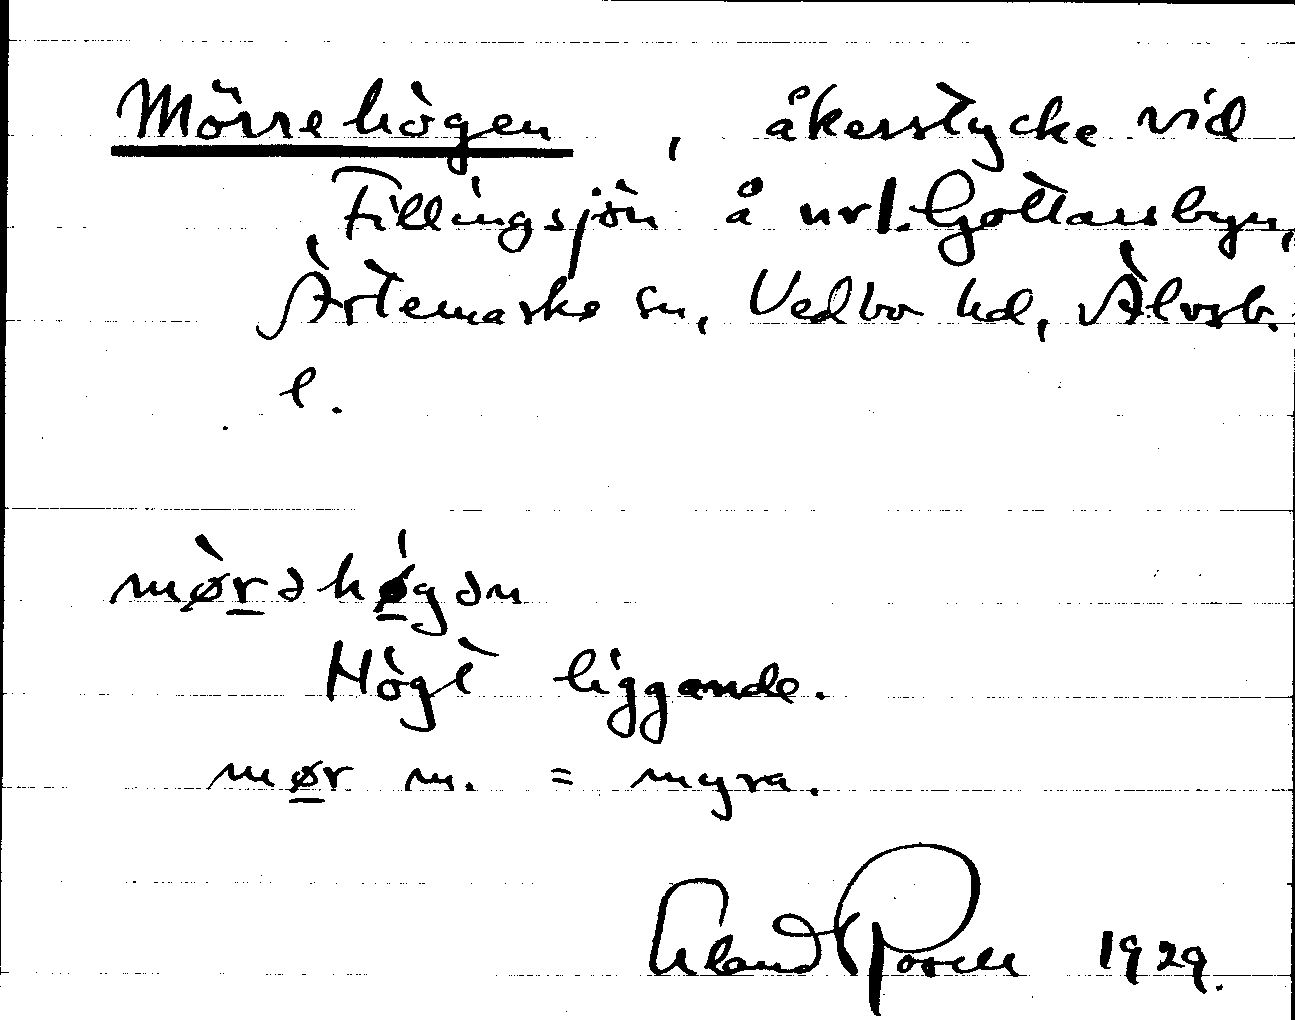 Mörrehögen, åkerstycke vid
Fillingsjön å nrl. Gottarsbyn,
Ärtemarks sn, Vedbo hd, Älvsb.
l.
mø̀rəhǿgən
Högt liggande.
mør m. = myra.
Rosell 1929.